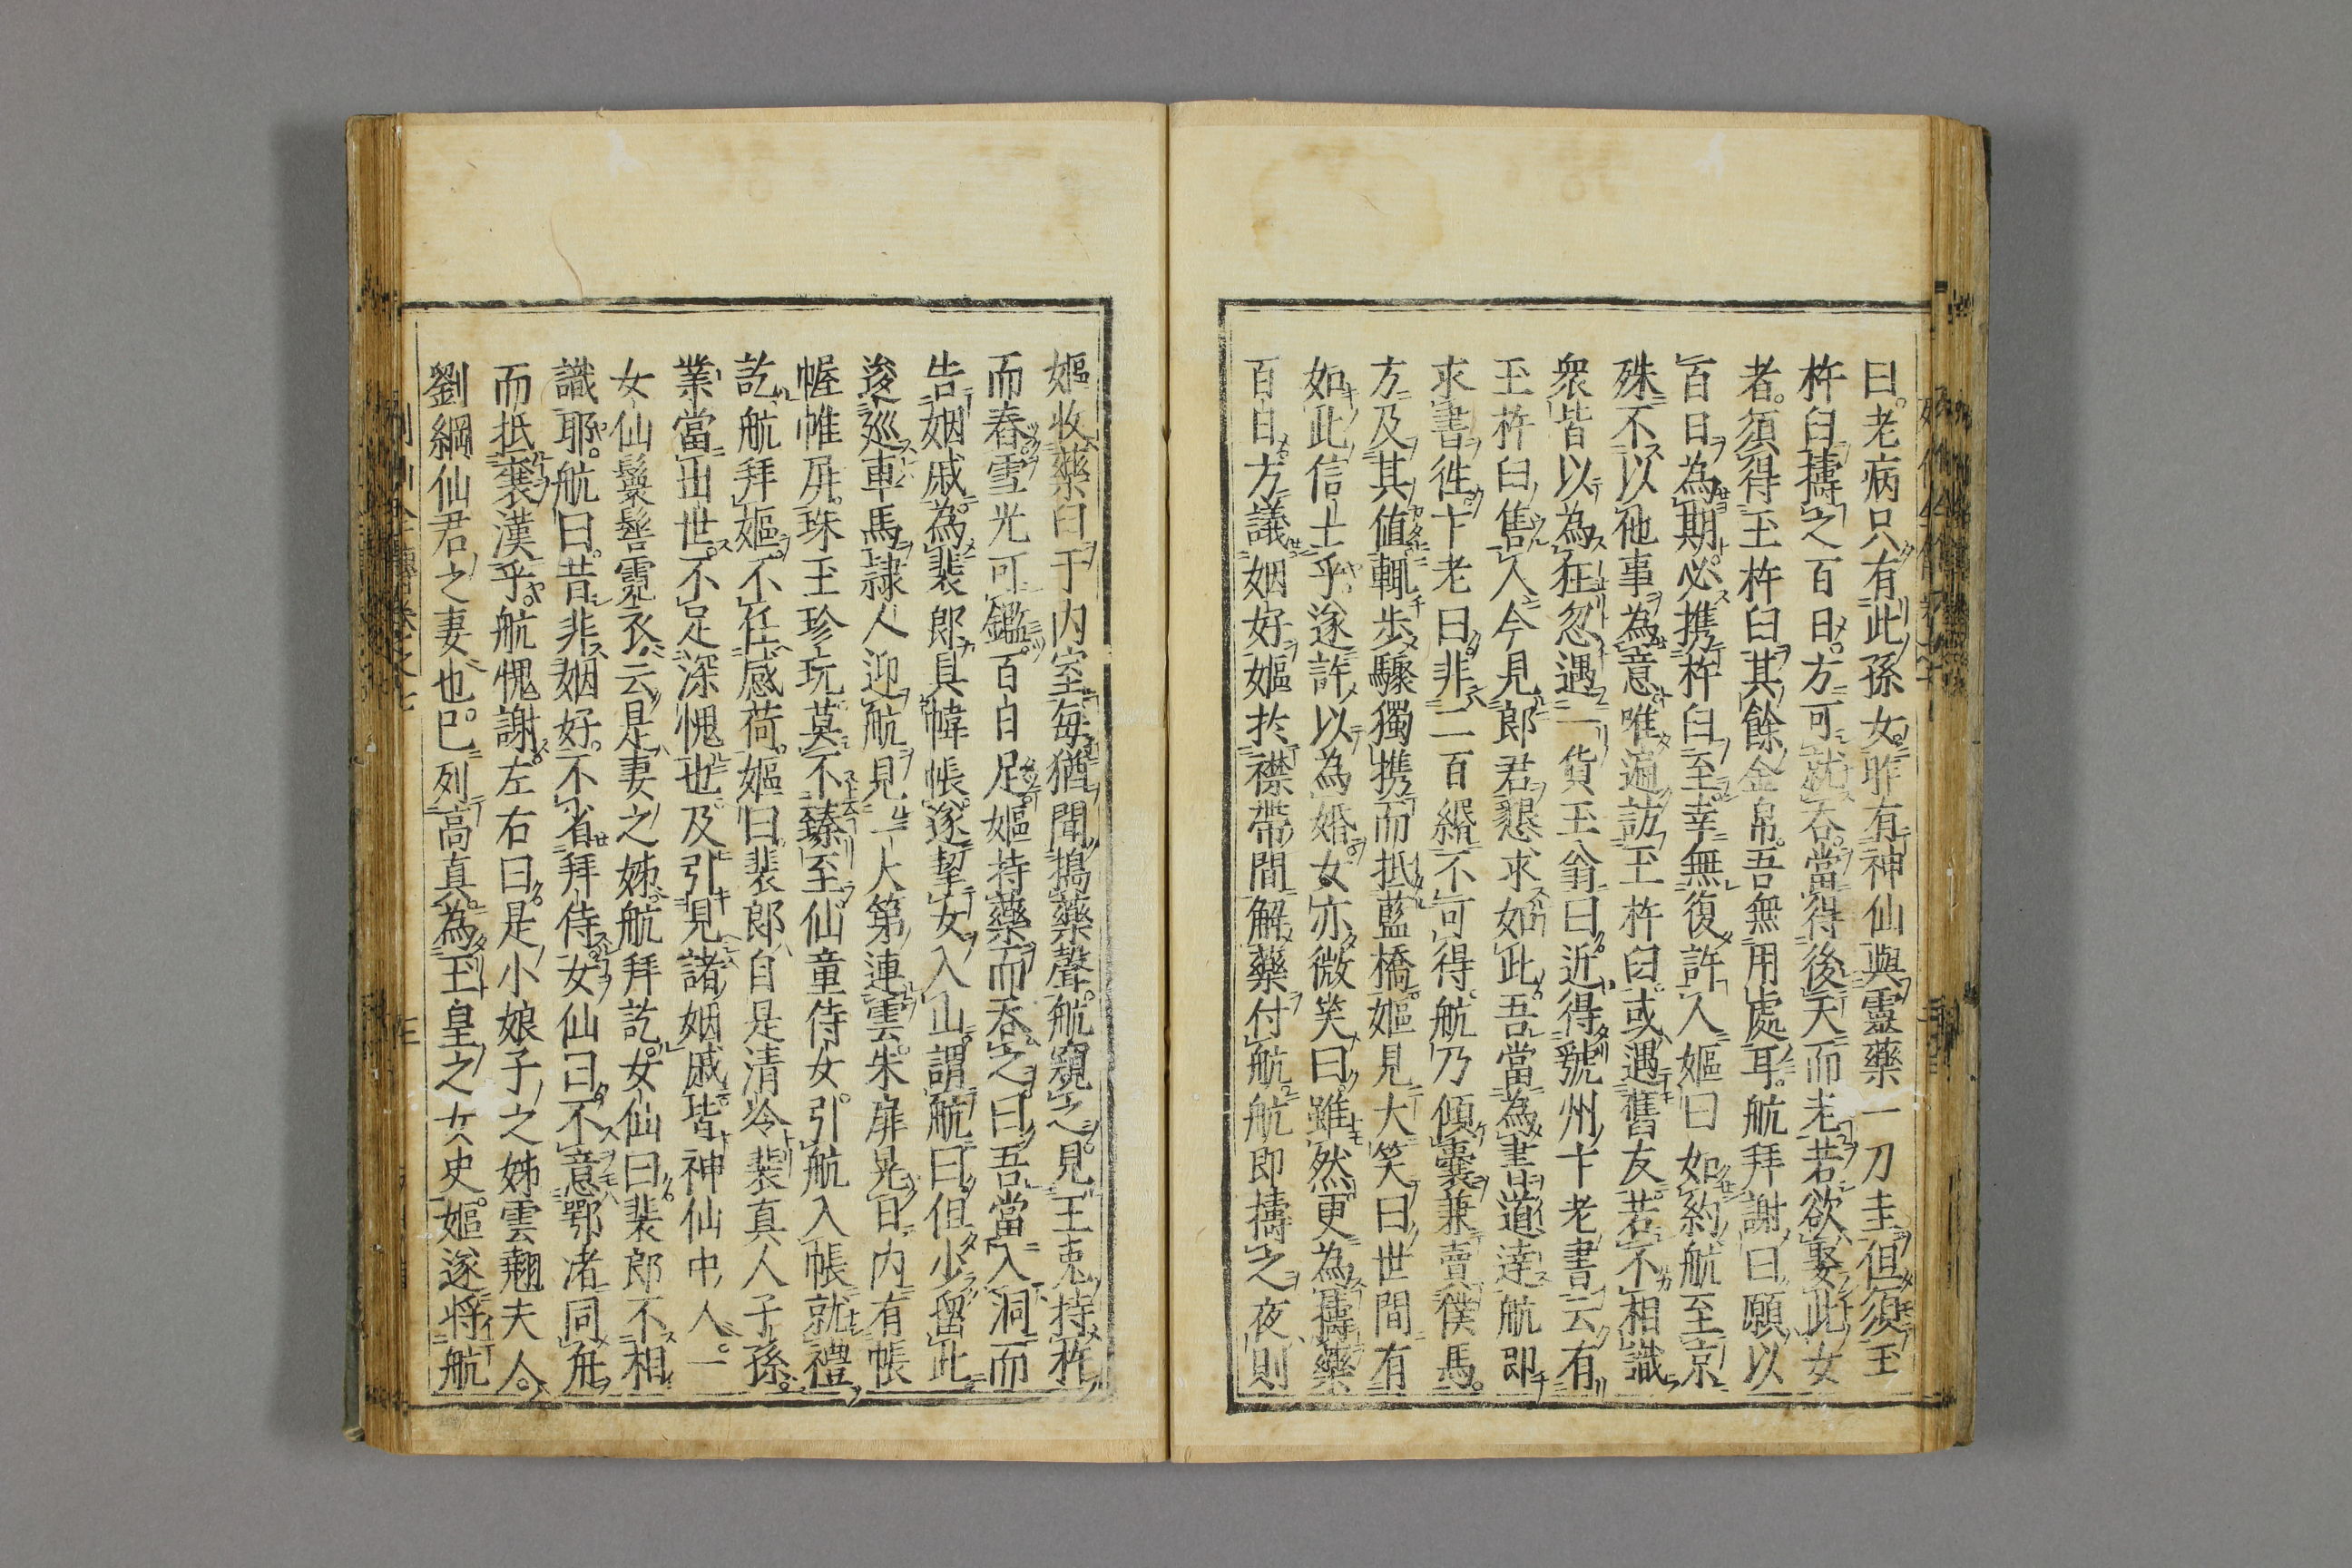 曰老病只有此孫女昨有神仙與靈藥一刀圭但須玉
杵臼擣之百日方可就吞當得後天而老若欲娶此女
者須得玉杵臼其餘金帛吾無用處耳航拜謝曰願以
百日為期必携杵臼至幸無復許人嫗曰如約航至京
殊不以他事為意唯遍訪玉杵臼或遇舊友若不相識
衆皆以為狂忽遇一貨玉翁曰近得虢州卞老書云有
玉杵臼售人今見郎君懇求如此吾當為書道達航即
求書徃卞老曰非二百緡不可得航乃傾囊兼賣僕馬
方及其値輒步驟獨携而抵藍橋嫗見大笑曰世間有
如此信士乎遂許以為婚女亦微笑曰雖然更為擣藥
百日方議姻好嫗於襟帶間解藥付航航即擣之夜則
嫗收藥臼于内室每猶聞搗藥聲航窺之見玉兎持杵
而舂雪光可鑑百日足嫗持藥而吞之曰吾當入洞而
告姻戚為裴郎具幃帳遂挈女入山謂航曰但少留此
逡巡車馬隷人迎航見一大第連雲朱扉晃日内有帳
幄帷屏珠玉珍玩莫不臻至仙童侍女引航入帳就禮
訖航拜嫗不任感荷嫗曰裴郎自是清冷裴真人子孫
業當出世不足深愧也及引見諸姻戚皆神仙中人一
女仙鬟髻霓衣云是妻之姊航拜訖女仙曰裴郎不相
識耶航曰昔非姻好不省拜侍女仙曰不意鄂渚同舟
而抵襄漢乎航愧謝左右曰是小娘子之姊雲翹夫人
劉綱仙君之妻也已列高真為玉皇之女史嫗遂将航